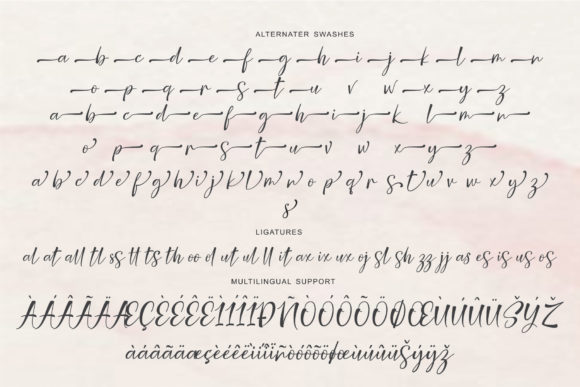 ALTERNATER SWASHES
a b c d e f g h i j k l m n
o p q r s t u v w x y z
a b c d e f g h i j k l m n
o p q r s t u v w x y z
a b c d e f g h i j k l m n o p q r s t u v w x y z
s
LIGATURES
al at all tl ss tt ts th oo ol ut ul ll it ax ix ux oj sl sh zz jj as es is us os
MULTILINGUAL SUPPORT
ÀÁÂÃÄÆÇÈÉÊËÌÍÎÏÐÑÒÓÔÕÖØŒÙÚÛÜŠÝŽ
àáâãäæçèéêëìíîïñòóôõöøœùúûüšýÿž